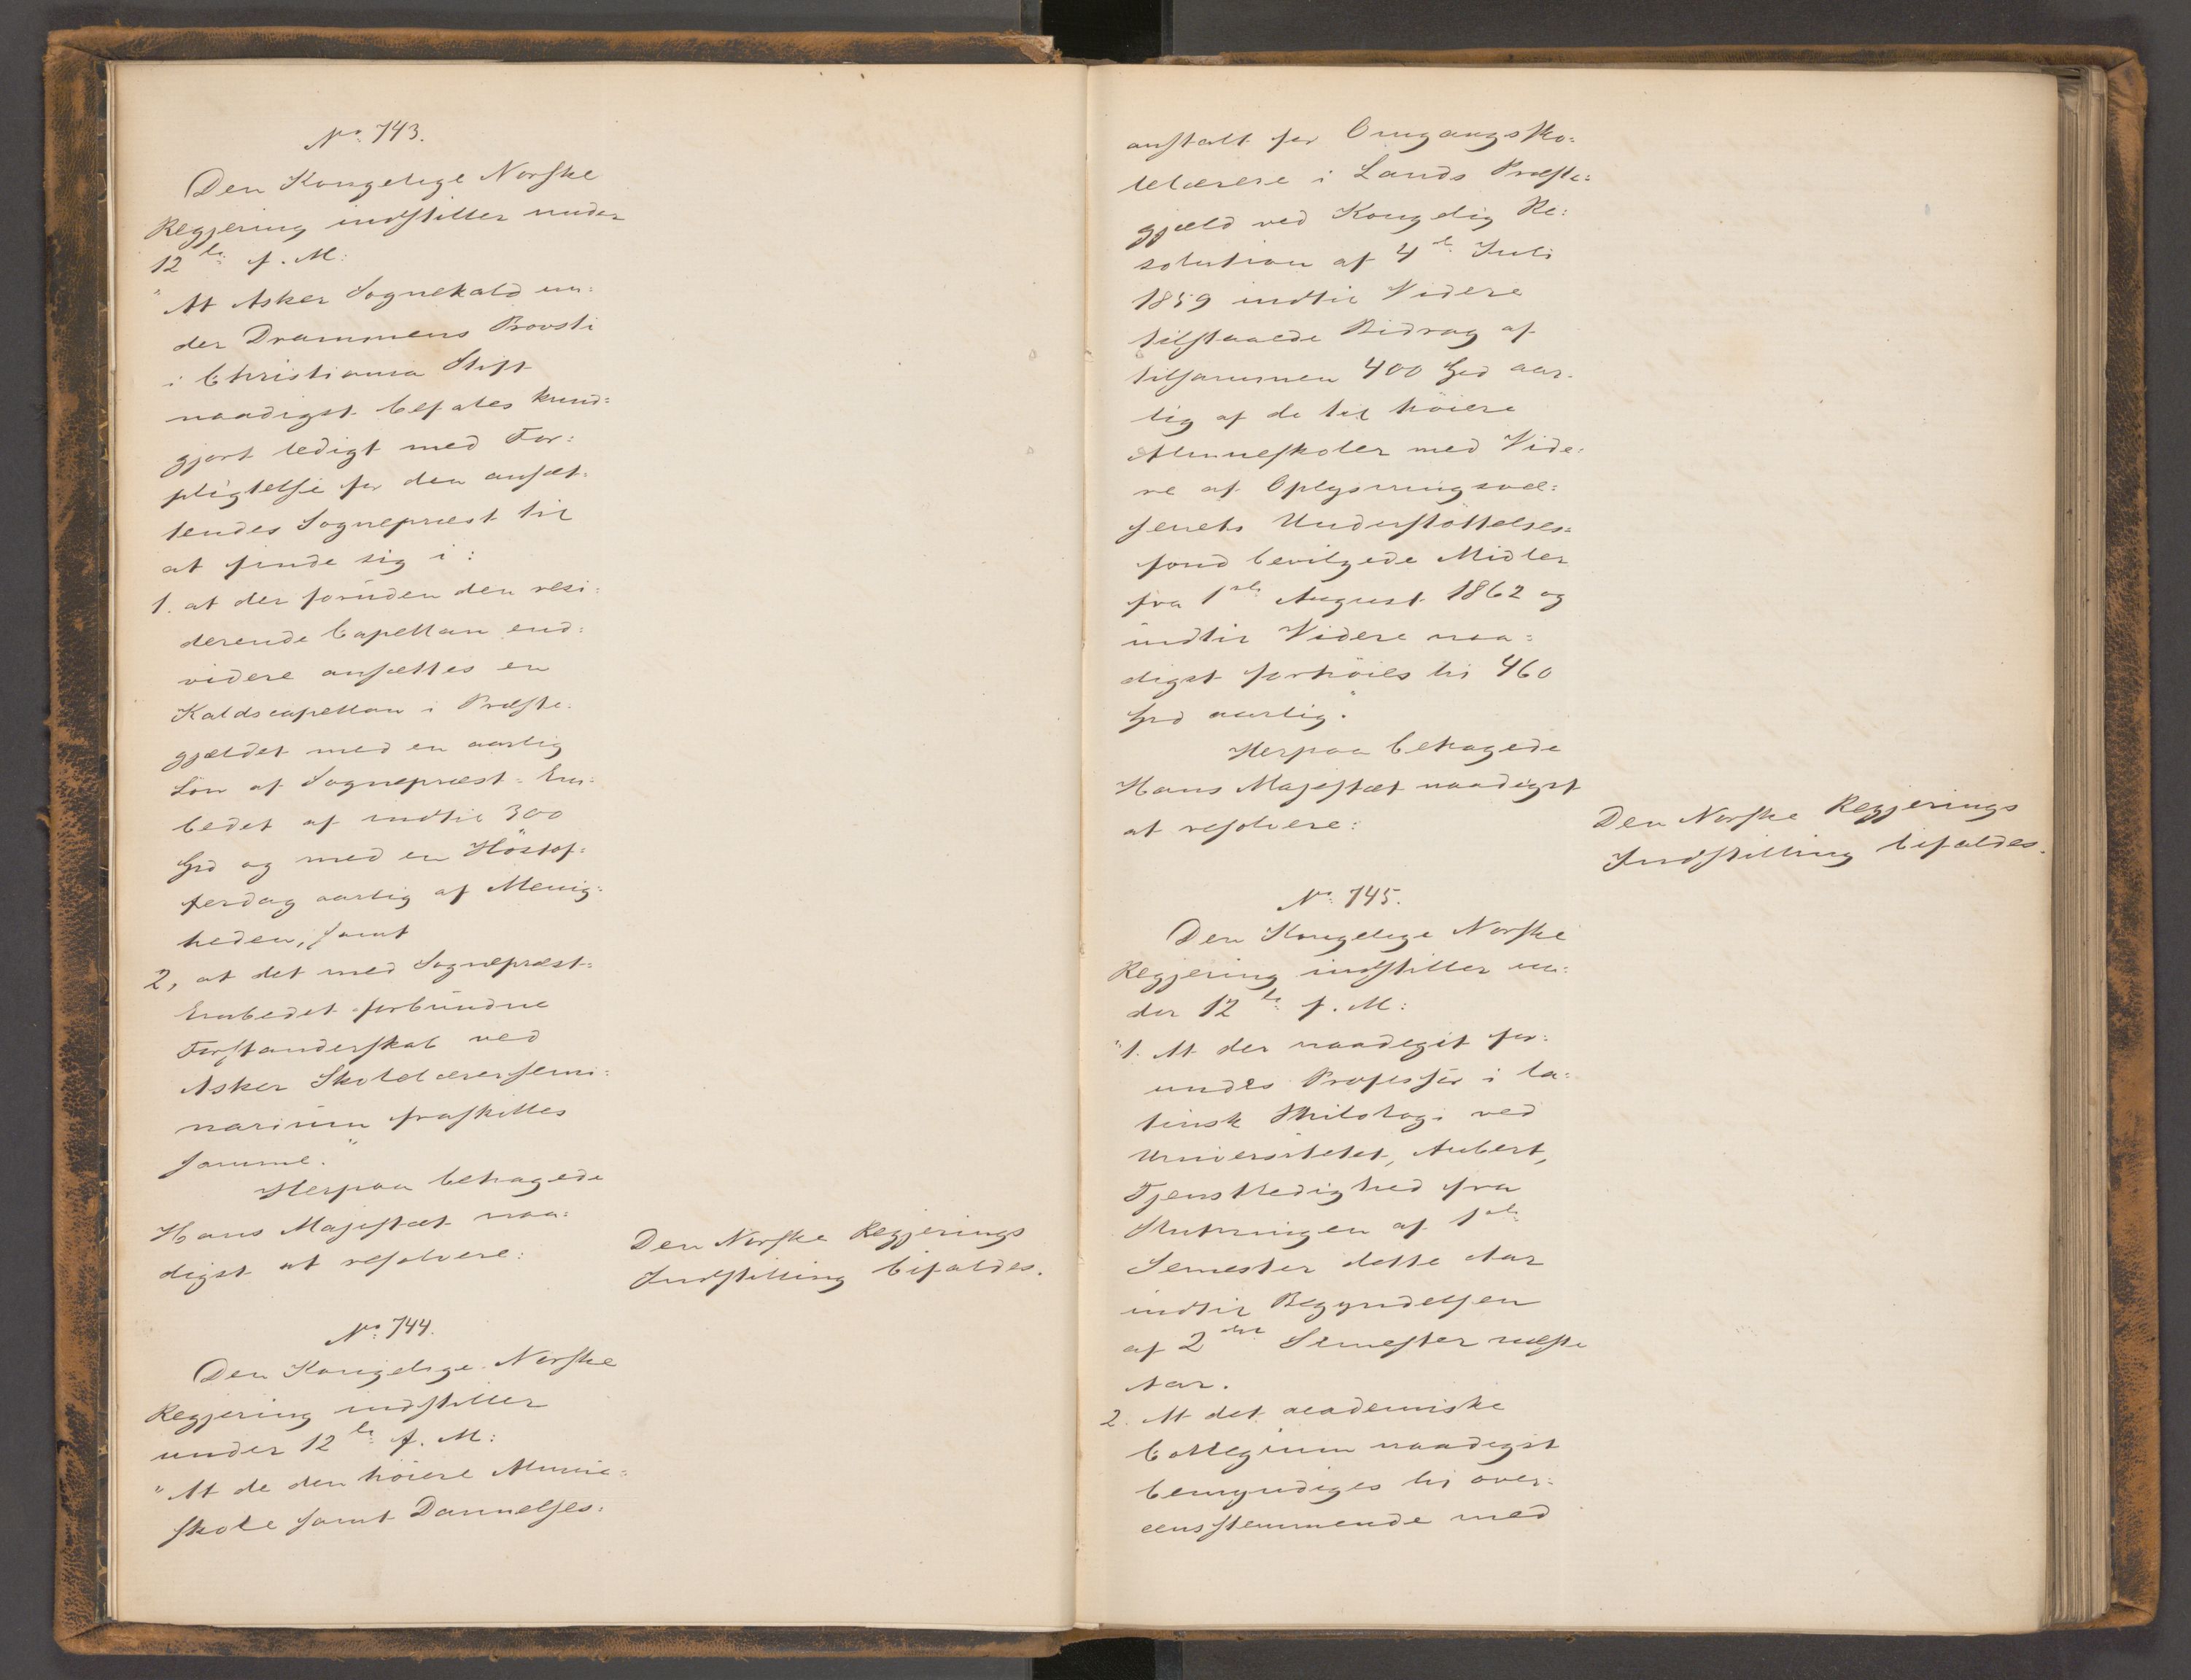 No. 743.
Den Kongelige Norske
Regjering indstiller under
12te f. M:
"At Asker Sognekald un=
der Drammens Provsti
i Christiania Stift
naadigst befales kund=
gjort ledigt med For=
pligtelse for den ansæt=
tendes Sognepræst til
at finde sig i:
1. at der foruden den resi=
derende Capellan end=
videre ansættes en
Kaldscapellan i Præste=
gjældet med en aarlig
Løn af Sognepræst=Em=
bedet af indtil 300
Spd og med en Höstof=
ferdag aarlig af Menig=
heden, samt
2, at det med Sognepræst=
Embedet forbundne
Forstanderskab ved
Asker Skolelærersemi=
narium fraskilles
samme."
Herpaa behagede
Hans Majestæt naa=
digst at resolvere:
Den Norske Regjerings
Indstilling bifaldes.
No. 744.
Den Kongelige Norske
Regjering indstiller
under 12te f. M:
"At de den höiere Almue=
skole samt Dannelses=
anstalt for Omgangssko=
lelærere i Lands Præste=
gjeld ved Kongelig Re=
solution af 4de Juli
1859 indtil Videre
tilstaaede Bidrag af
tilsammen 400 Spd aar=
lig af de til höiere
Almueskoler med Vide=
re af Oplysningsvæ=
senets Understöttelses=
fond bevilgede Midler
fra 1ste August 1862 og
indtil Videre naa=
digst forhöies til 460
Spd aarlig."
Herpaa behagede
Hans Majestæt naadigst
at resolvere:
Den Norske Regjerings
Indstilling bifaldes.
No. 745.
Den Kongelige Norske
Regjering indstiller un=
der 12te f. M:
"1. At der naadigst for=
undes Professor i la=
tinsk Philologi ved
Universitetet, Aubert,
Tjenstledighed fra
Slutningen af 1ste
Semester dette Aar
indtil Begyndelsen
af 2det Semester næste
Aar.
2. At det academiske
Collegium naadigst
bemyndiges til over=
eensstemmende med